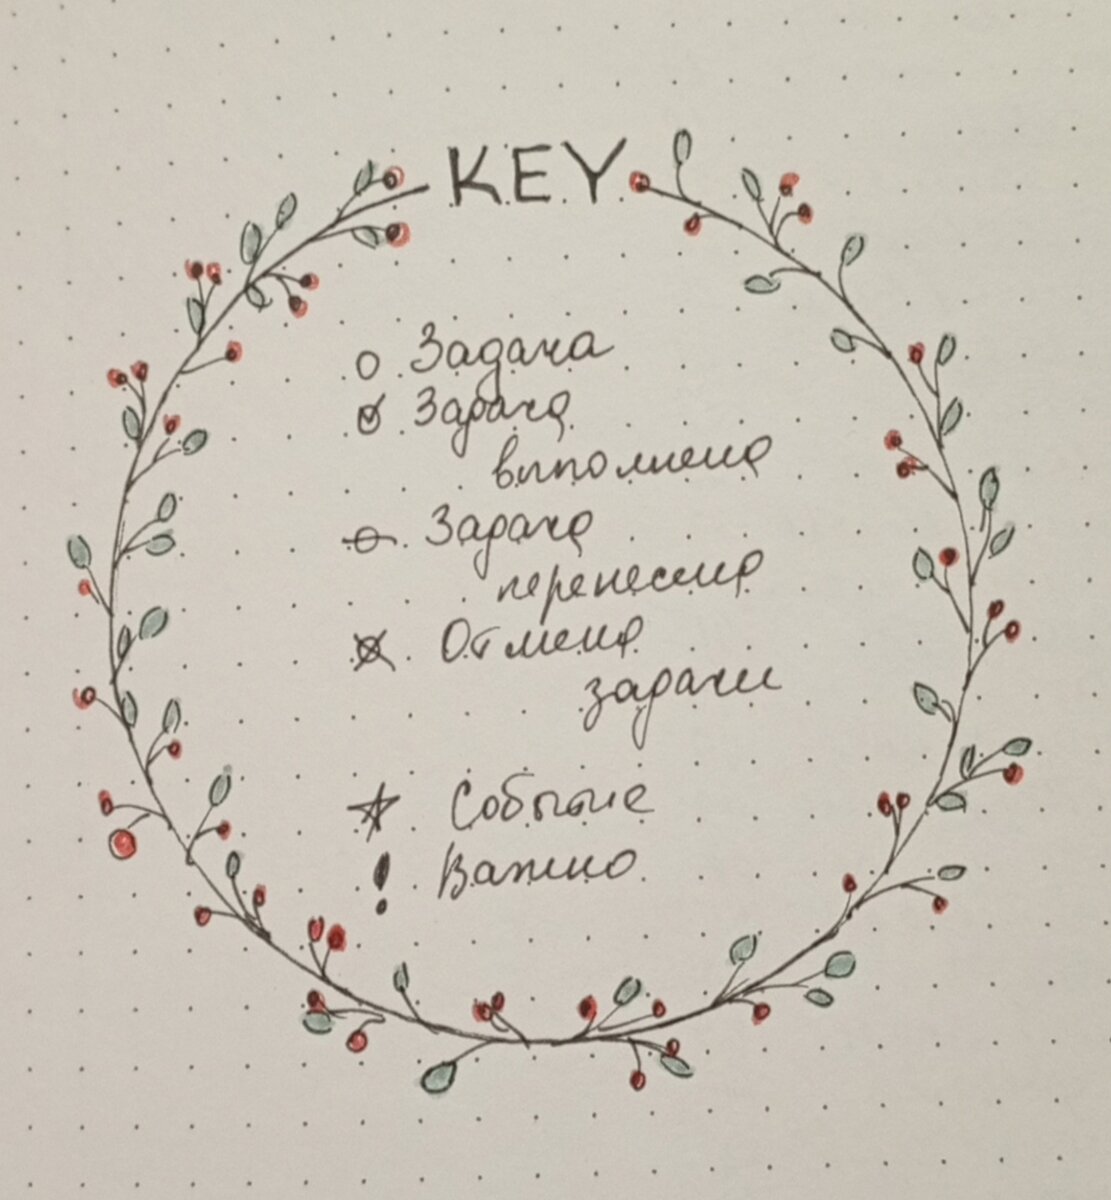 KEY
Задача
Задача
выполнена
Задача
перенесена
Отмена
задачи
Событие
! Важно